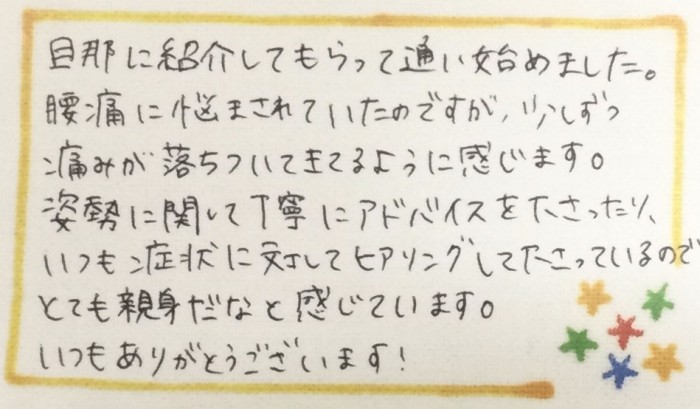 旦那に紹介してもらって通い始めました。
腰痛に悩まされていたのですが、少しずつ
痛みが落ちついてきてるように感じます。
姿勢に関して丁寧にアドバイスを下さったり、
いつも症状に対してヒアリングして下さっているので
とても親身だなと感じています。
いつもありがとうございます！